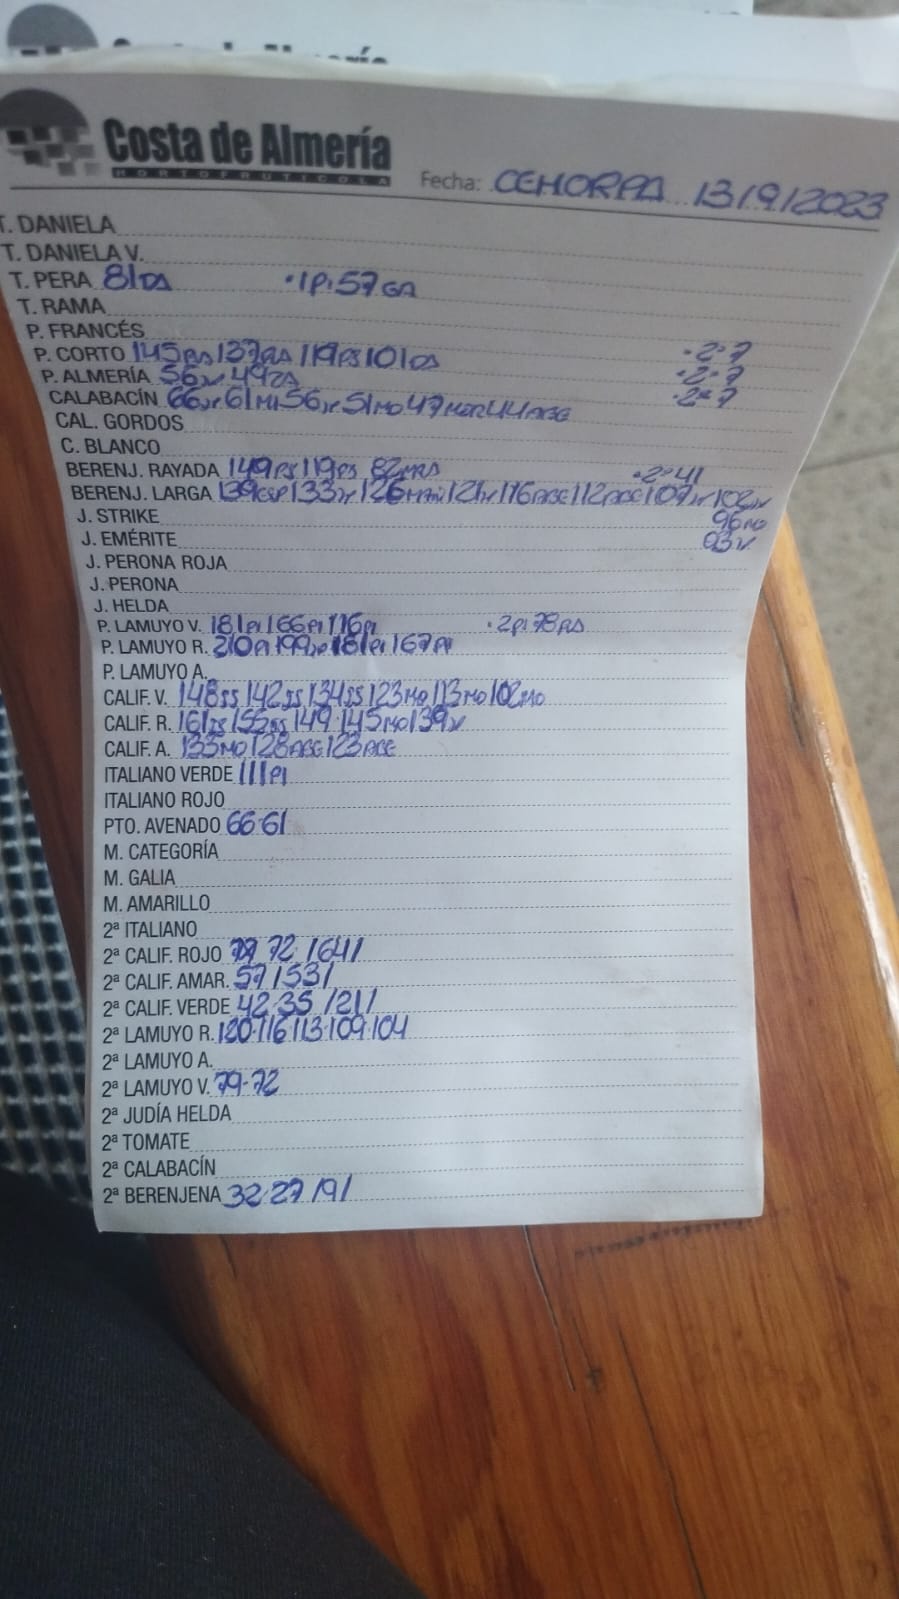 Costa de Almería
HORTOFRUTICOLA
Fecha: CEHORPA 13/9/2023
T. DANIELA
T. DANIELA V.
T. PERA 81DA ·1P:57GA
T. RAMA
P. FRANCÉS
P. CORTO 145 137 119PS 101DA ·2·7
P. ALMERÍA 56 49 ·2·7
CALABACÍN 66 61 56 51MO 47MER 44AGE ·2·7
CAL. GORDOS
C. BLANCO
BERENJ. RAYADA 149PS 119PS 82 ·2·41
BERENJ. LARGA 139 133 126 121 116AGE 112AGE 107 102
J. STRIKE 96MO
J. EMÉRITE 93
J. PERONA ROJA
J. PERONA
J. HELDA
P. LAMUYO V. 181PI 166PI 116PI ·2P:78
P. LAMUYO R. 210PI 199 181PI 167PI
P. LAMUYO A.
CALIF. V. 148SS 142SS 134SS 123MO 113MO 102MO
CALIF. R. 161 152SS 149·145MO 139
CALIF. A. 133MO 128AGE 123AGE
ITALIANO VERDE 111PI
ITALIANO ROJO
PTO. AVENADO 66·61
M. CATEGORÍA
M. GALIA
M. AMARILLO
2ª ITALIANO
2ª CALIF. ROJO 79 72 /64/
2ª CALIF. AMAR. 57 /53/
2ª CALIF. VERDE 42·35 /21/
2ª LAMUYO R. 120·116·113·109·104
2ª LAMUYO A.
2ª LAMUYO V. 79-72
2ª JUDÍA HELDA
2ª TOMATE
2ª CALABACÍN
2ª BERENJENA 32·27 /9/